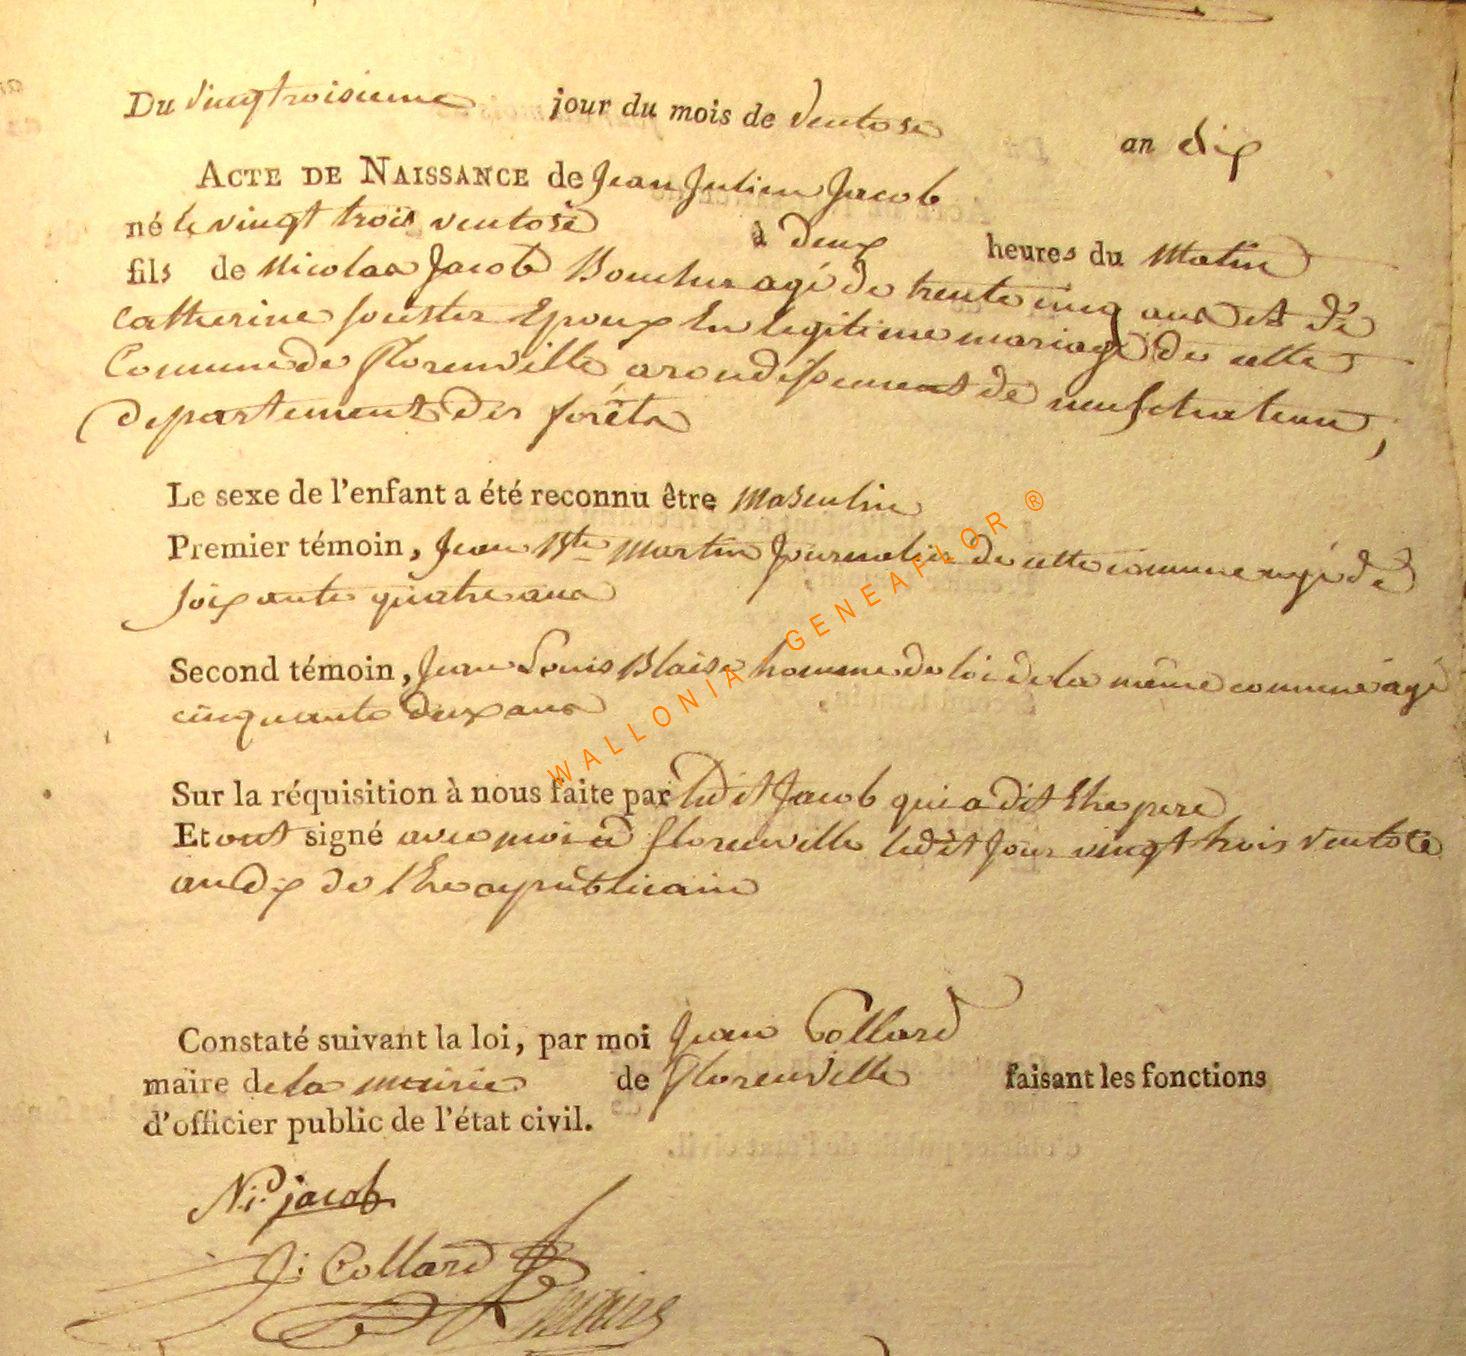 Du vingtroisieme jour du mois de ventose an dix
ACTE DE NAISSANCE de Jean Julien Jacob
né le vingt trois ventose à deux heures du matin
fils de Nicolas Jacob Boucher agé de trente cinq ans et de
Catherine Epoux En legitime mariage de cette
Commune de florenville arondissement de neufchateau,
departement des forêts
Le sexe de l'enfant a été reconnu être masculin
Premier témoin, Jean Bte Martin Journalier de cette commune agé de
soixante quatre ans
Second témoin, Jean Louis Blaise homme de loi de la même commune agé
cinquante deux ans
Sur la réquisition à nous faite par ledit Jacob qui a dit Etre pere
Et ont signé avec moi a florenville ledit jour vingt trois ventose
an dix de
Constaté suivant la loi, par moi Jean Collard
maire de la mairie de florenville faisant les fonctions
d'officier public de l'état civil.
Ni. jacob
J: Collard
maire
WALLONIA GENEAFLOR ®